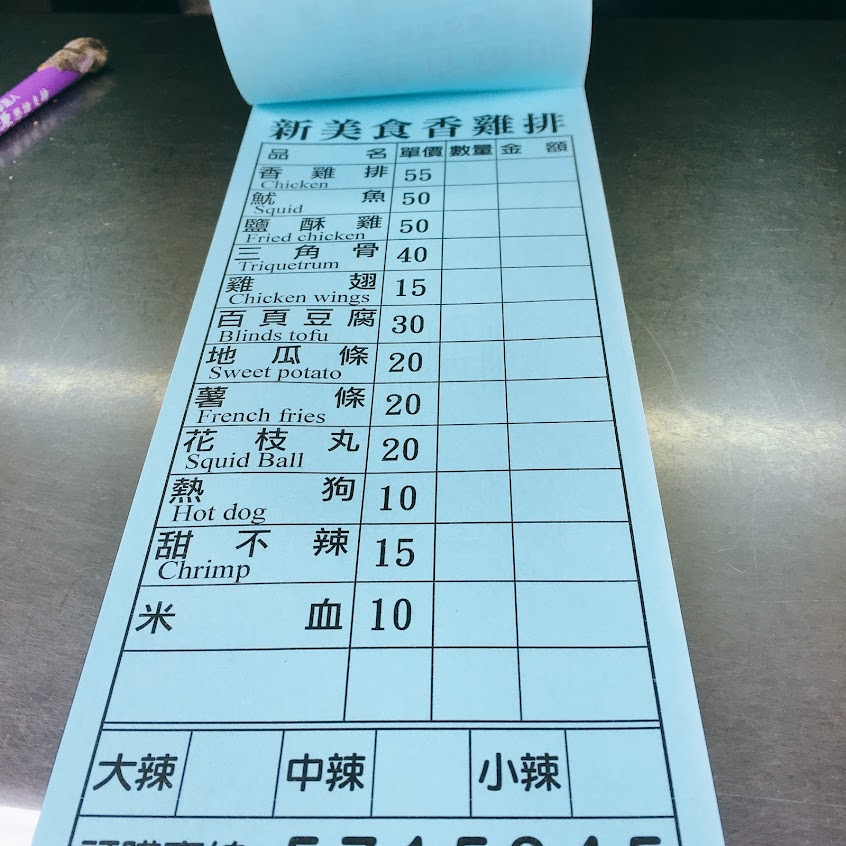 新美食香雞排
品名 單價 數量 金額
香雞排 55
Chicken
魷魚 50
Squid
鹽酥雞 50
Fried chicken
三角骨 40
Triquetrum
雞翅 15
Chicken wings
百頁豆腐 30
Blinds tofu
地瓜條 20
Sweet potato
薯條 20
French fries
花枝丸 20
Squid Ball
熱狗 10
Hot dog
甜不辣 15
Chrimp
米血 10
大辣 中辣 小辣